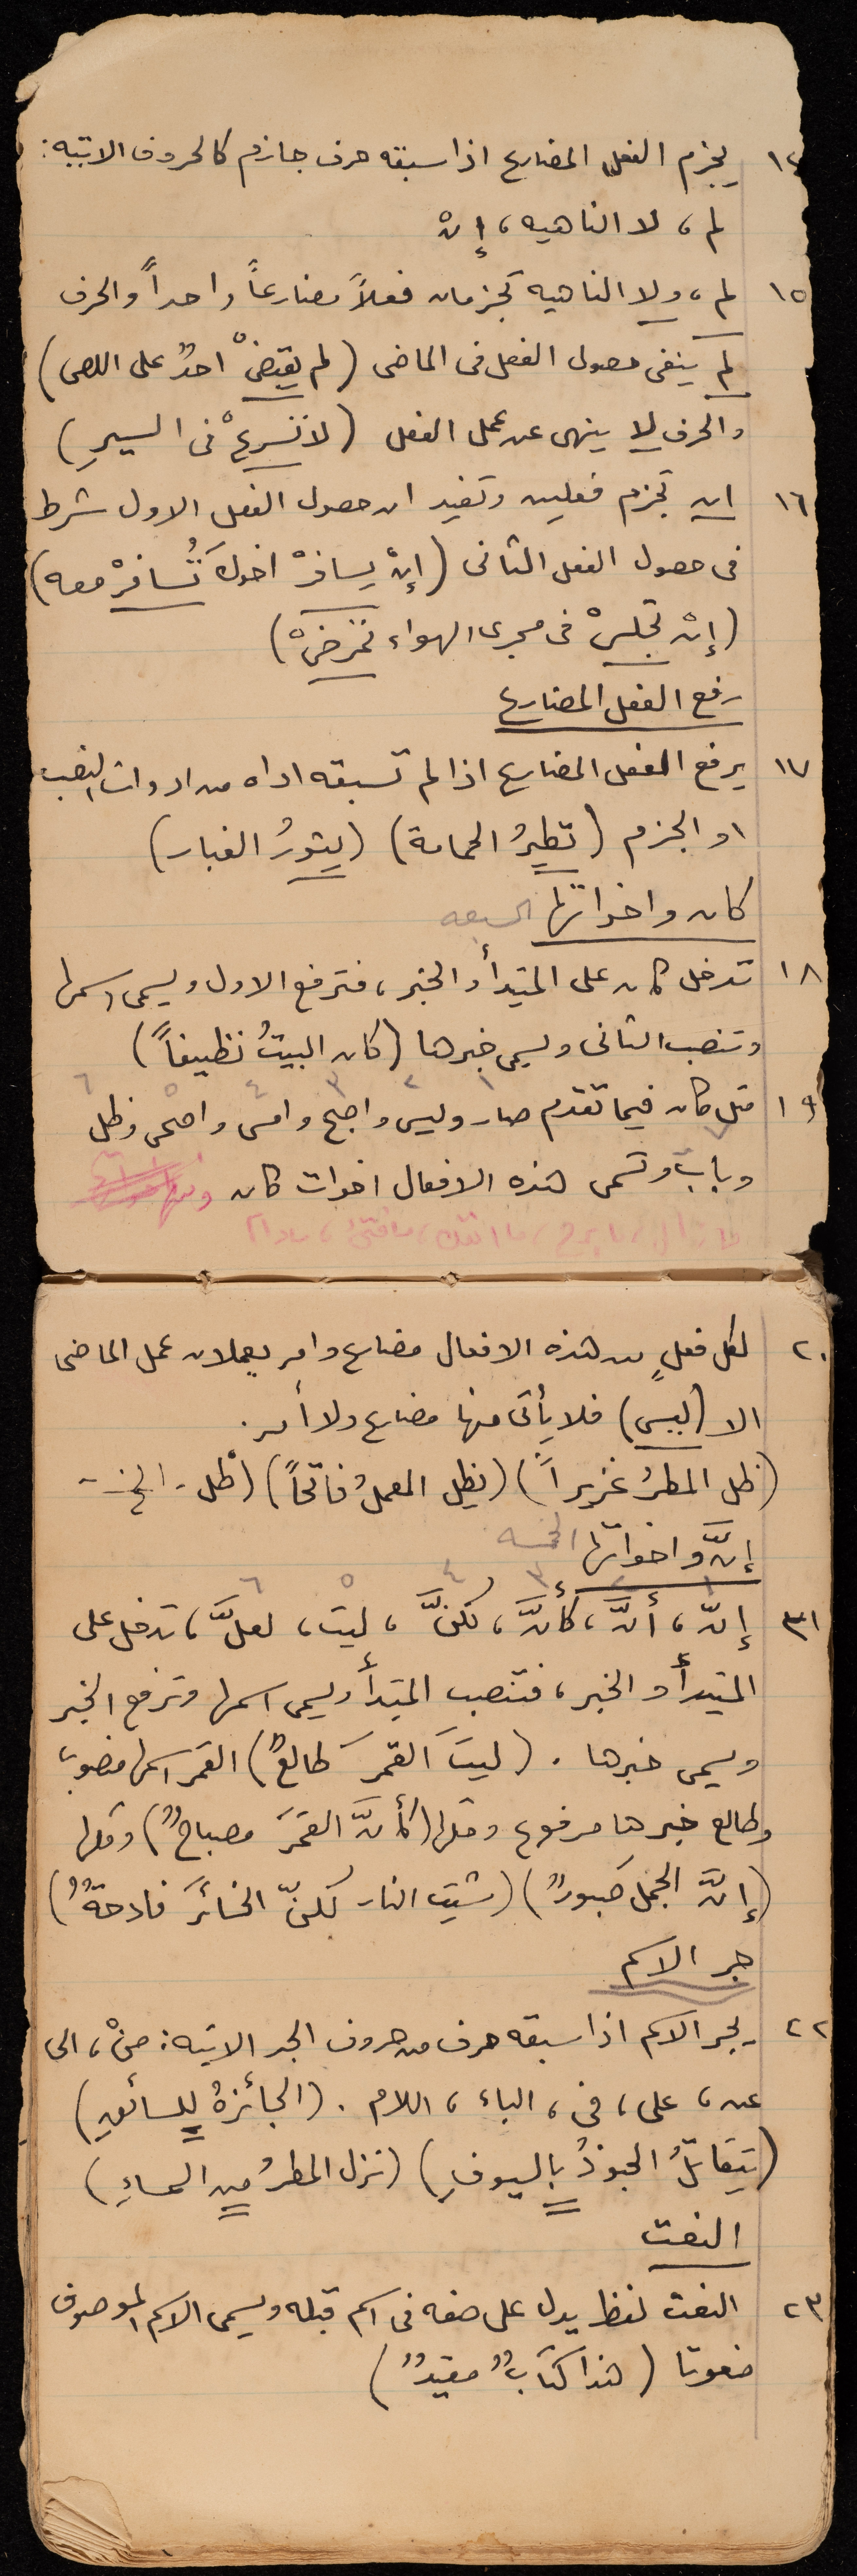 ١٤ يجزم الفعل المضارع اذا سبقه حرف جازم كالحروف الاتيه:
لم ، لا الناهيه ، إنْ
١٥ لم ، ولا الناهيه تجزمان فعلاً مضارعاً واحداً والحرف
لم ينفى حصول الفعل فى الماضى (لم يقبضْ احدٌ على اللص)
والحرف لا ينهى عن عمل الفعل (لا تسرعْ فى السيرِ)
١٦ ان تجزم فعلين وتفيد ان حصول الفعل الاول شرط
فى حصول الفعل الثانى (إنْ يسافرْ اخوك تُسافرْ معه)
(إنْ تجلسْ فى مجرى الهواء تمرضْ)
رفع الفعل المضارع
١٧ يرفع الفعل المضارع اذا لم تسبقه اداه من ادوات النصب
او الجزم (تطيرُ الحمامة) (يثورُ الغبار)
كان واخواتها السبعه
١٨ تدخل كان على المبتدأ والخبر ، فترفع الاول ويسمى اسمها
وتنصب الثانى ويسمى خبرها (كان البيتُ نظيفاً)
١ ٢ ٣ ٤ ٥ ٦
١٩ مثل كان فيما تقدم صار وليس واصبح وامسى واضحى وظل
وبات وتسمى هذه الافعال اخوات كان
مازال ، ما برح ، ما انفك ، مافتئ ، مادام
٢٠ لكل فعلٍ من هذه الافعال مضارع وامر يعملان عمل الماضى
الا (ليس) فلا يأتى منها مضارع ولا أمر .
(ظل المطرُ غزيراً) (يظل المعملُ فاتحاً) (ظل - الخ -
إنَّ واخواتها الخمسه
١ ٢ ٣ ٤ ٥ ٦
٣١ إنّ ، أنَّ ، كأنَّ ، لكنَّ ، ليت ، لعلَّ ، تدخل على
المبتدأ والخبر ، فتنصب المبتدأ ويسمى اسمها وترفع الخبر
ويسمى خبرها . (ليتَ القمرَ طالعٌ) القمر اسمها منصوب
وطالع خبرها مرفوع ومثلها (كأنَّ القمرَ مصباحٌ) ومثلها
(إنَّ الجمل صبورٌ) (شبت النار لكنّ الخسائرَ فادحةٌ)
جر الاسم
٢٢ يجر الاسم اذا سبقه حرف من حروف الجر الاتيه : منْ ، الى
عن ، على ، فى ، الباء ، اللام . (الجائزةُ للسائقِ)
(يتقاتلُ الجنودُ بالسيوفِ) (نزل المطرُ من السماءِ)
النعت
٢٣ النعت لفظ يدل على صفه فى اسم قبله ويسمى الاسم الموصوف
منعوتا (هذا كتابٌ مفيدٌ)